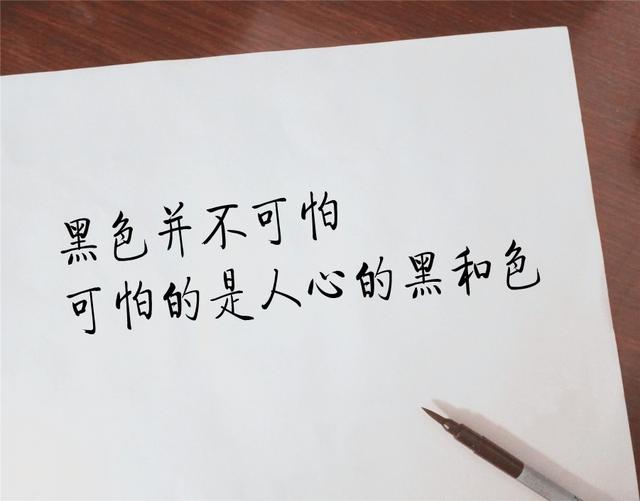 黑色并不可怕
可怕的是人心的黑和色